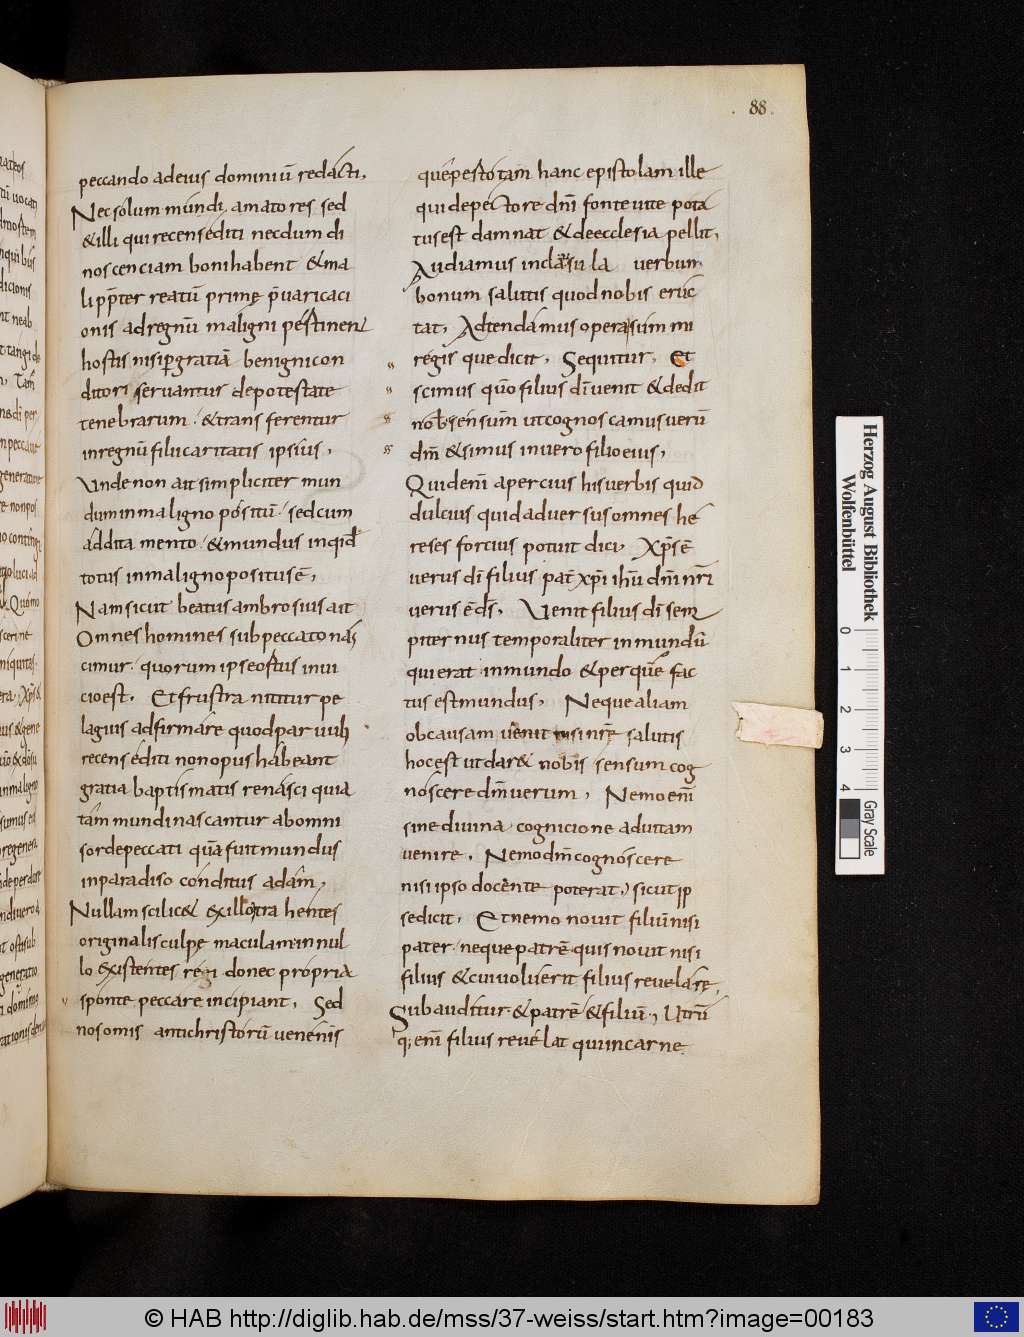 88.
peccando adeius dominiū redacti,
Nec solum mundi amatores sed
&illi qui recens editi necdum di
noscenciam boni habent &ma
li pp̄ter reatū prime p̄uaricaci
onis adregnū maligni pestineni
hostis nisi p̄ gratiā benigni con
ditori servantur depotestate
tenebrarum · &transferentur
inregnū filii caritatis ipsius,
Unde non ait simpliciter mun
dum inmaligno positū · sed cum
addita mento · &mundus inqid
totus inmaligno positus ē,
Nam sicut beatus ambrosius ait
Omnes homines sub peccato nas
cimur · quorum ipse ostus inui
cio est, Et frustra nititur pe
lagius adfirmare quod paruuli
recens editi non opus habeant
gratia baptismatis renasci quia
tam mundi nascantur ab omni
sorde peccati quā fuit mundus
inparadiso conditus adam,
Nullam scilic& exillo tra hentes
originalis culpe maculam in nul
lo existentes regi donec propria
sponte peccare incipiant, Sed
nos omis antichristorū venenis
qui depectore dn̄i fonte uite pota
tus est damnat &deecclesia pellit,
Audiamus in clausula verbum
bonum salutis quod nobis eruc
tat, Adtendamus opera sum mi
regis que dicit, Sequitur, Et
scimus qūo filius dī uenit &dedit
nob̄ sensum ut cognoscamus uerū
dm̄ &simus in uero filio eius,
Quid enī apercius his uerbis quid
dulcius quid aduersus omnes he
reses forcius potuit dici, Xp̄s ē
uerus dī filius pat̄ xp̄i ihū dn̄i nr̄i
uerus ē dſ, Uenit filius dī sem
piternus temporaliter in mundū
qui erat in mundo &per quē fac
tus est mundus, Neque aliam
ob causam uenit nisi nr̄ē salutis
hoc est ut dar& nobis sensum cog
noscere dm̄ uerum, Nemo enī
sine diuina cognicione ad uitam
uenire, Nemo dm̄ cognoscere
nisi ipso docente poterat, sicut ip
se dicit, Et nemo nouit filiū nisi
pater · neque patrē quis nouit nisi
filius &cui uoluerit filius reuelare,
Subauditur &patrē &filiū, Utrū
q; enī filius reuelat qui in carne
Herzog August Bibliothek
Wolfenbüttel
0 1 2 3 4
Gray Scale
© HAB http://diglib.hab.de/mss/37-weiss/start.htm?image=00183